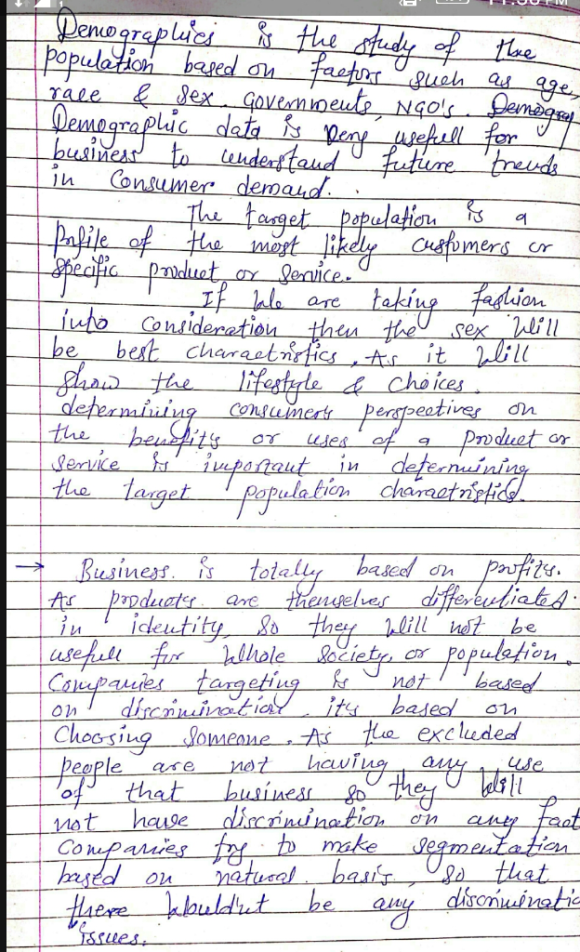 Demographics is the study of the
population based on factors such as age,
race & sex. governments, NGO's. Demograp
Demographic data is very usefull for
business to understand future trends
in Consumer demand.
The target population is a
Profile of the most likely customers or
specific product or service.
If We are taking fashion
into Consideration then the sex will
be best charactristics. As it will
show the lifestyle & choices.
determining consumers perspectives on
the benefits or uses of a product or
service is important in determining
the target population charactristics.
→ Business is totally based on profits.
As products are themselves differentiated
in identity, so they will not be
usefull for whole society or population.
Companies targeting is not based
on discrimination it's based on
Choosing someone. As the excluded
people are not having any use
of that business so they will
not have discrimination on any fact
Companies try to make segmentation
based on natural basis, so that
there wouldn't be any discriminatio
issues.